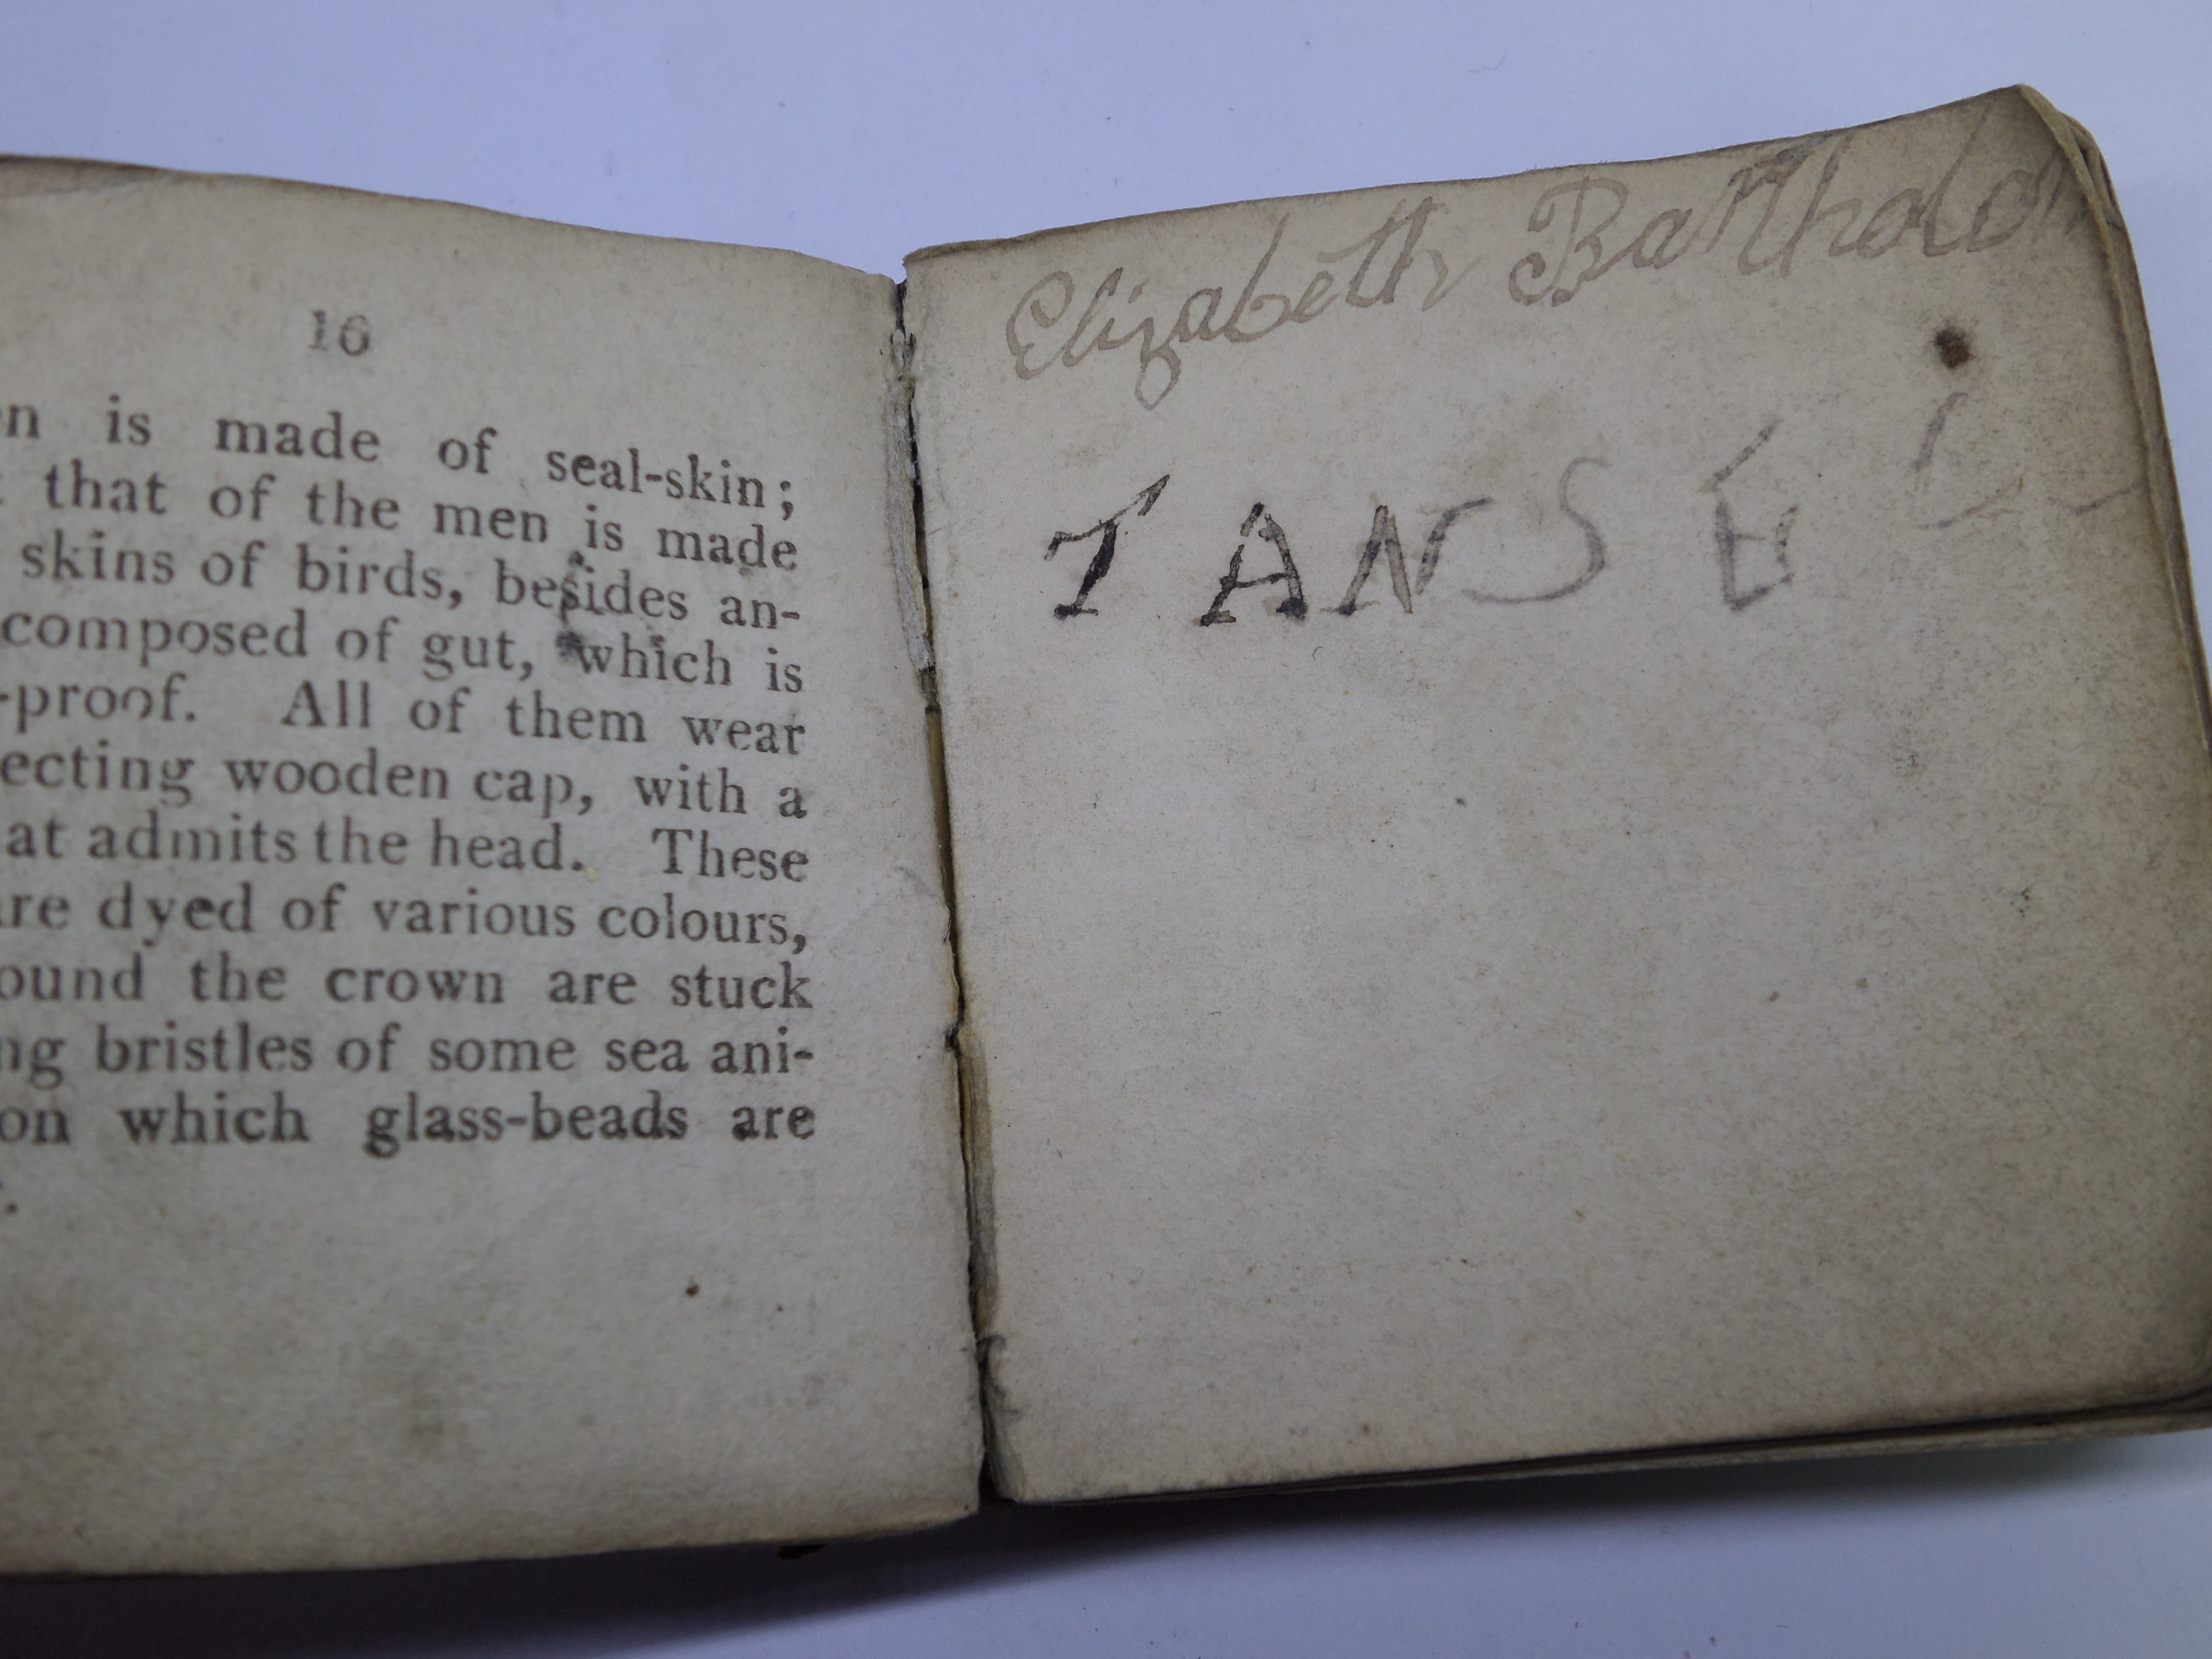 16
en is made of seal-skin;
t that of the men is made
skins of birds, besides an-
composed of gut, which is
-proof. All of them wear
ecting wooden cap, with a
at admits the head. These
are dyed of various colours,
ound the crown are stuck
ng bristles of some sea ani-
on which glass-beads are
Elizabeth Bartholom
TANSEL